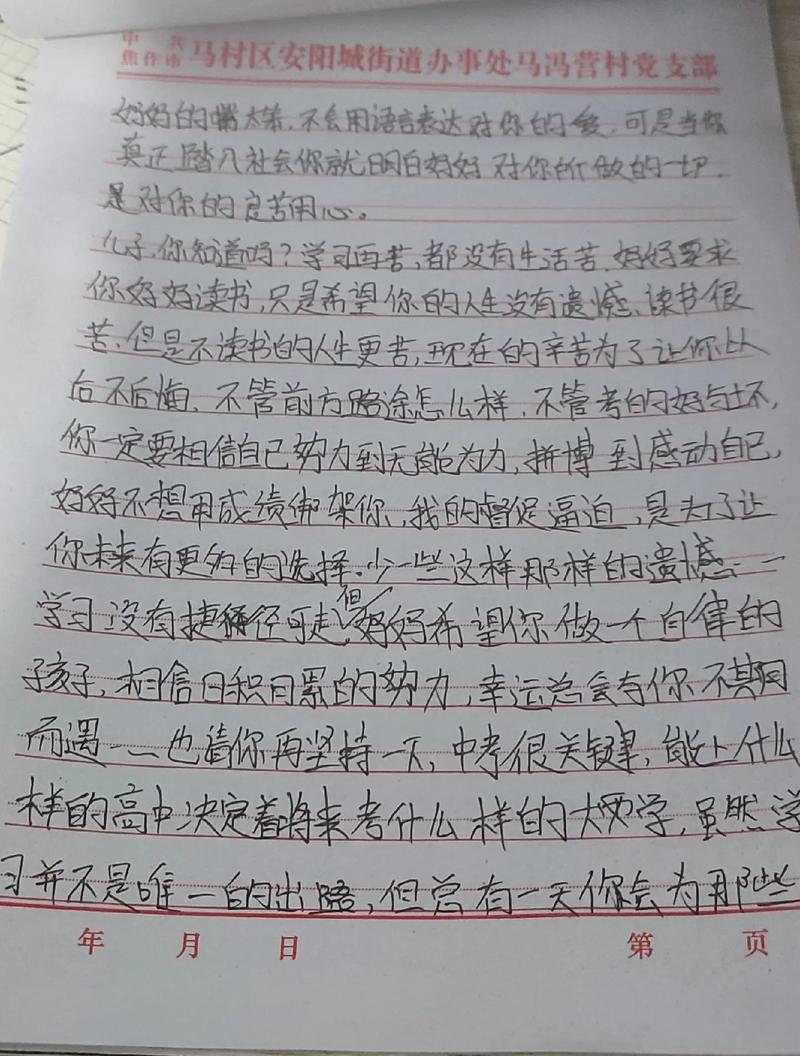 中共
焦作市 马村区安阳城街道办事处马冯营村党支部
妈妈的嘴太笨,不会用语言表达对你的爱,可是当你
真正踏入社会你就明白妈妈对你所做的一切,
是对你的良苦用心。
儿子,你知道吗?学习再苦,都没有生活苦,妈妈要求
你好好读书,只是希望你的人生没有遗憾、读书很
苦、但是不读书的人生更苦,现在的辛苦为了让你以
后不后悔、不管前方路途怎么样,不管考的好与坏,
你一定要相信自己努力到无能为力,拼博到感动自己,
妈妈不想用成绩绑架你、我的督促逼迫,是为了让
你未来有更多的选择、少一些这样那样的遗憾:一
学习没有捷径可走,但妈妈希望你做一个自律的
孩子,相信日积月累的努力,幸运总会与你不期
而遇一一也请你再坚持一下,中考很关键,能上什么
样的高中决定着将来考什么样的大学,虽然学
习并不是唯一的出路,但总有一天你会为那些
年 月 日 第 页